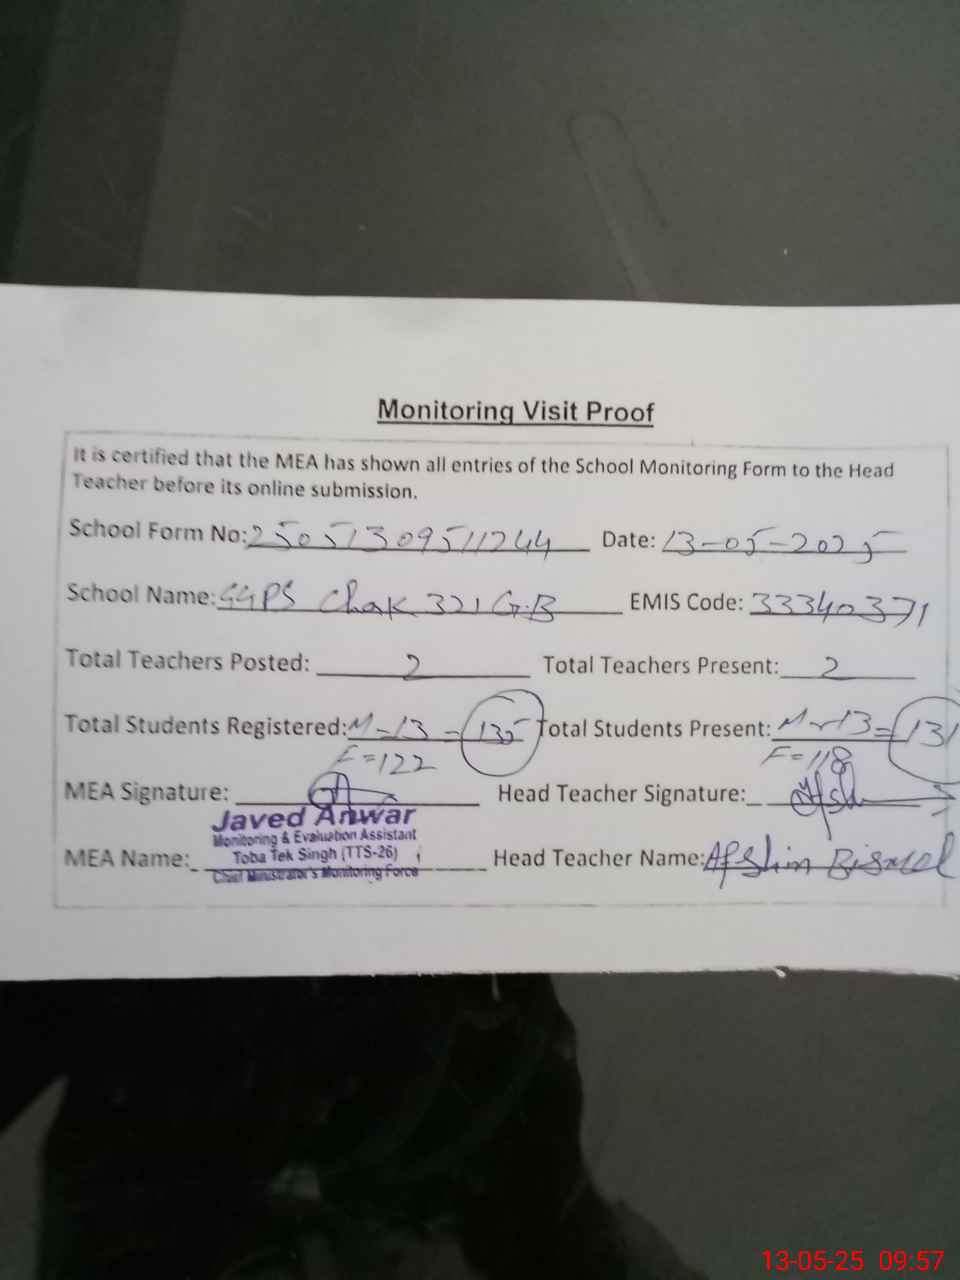 Monitoring Visit Proof
It is certified that the MEA has shown all entries of the School Monitoring Form to the Head
Teacher before its online submission.
School Form No: 25051309511244 Date: 13-05-2025
School Name: GGPS Chak 321 G.B EMIS Code: 33340371
Total Teachers Posted: 2 Total Teachers Present: 2
Total Students Registered: M-13 = 135 Total Students Present: M-13 = 131
F=122 F=118
MEA Signature: Head Teacher Signature:
Javed Anwar
Monitoring & Evaluation Assistant
Toba Tek Singh (TTS-26)
MEA Name: Head Teacher Name: Afshin
Chief Ministrator's Monitoring Force
13-05-25 09:57